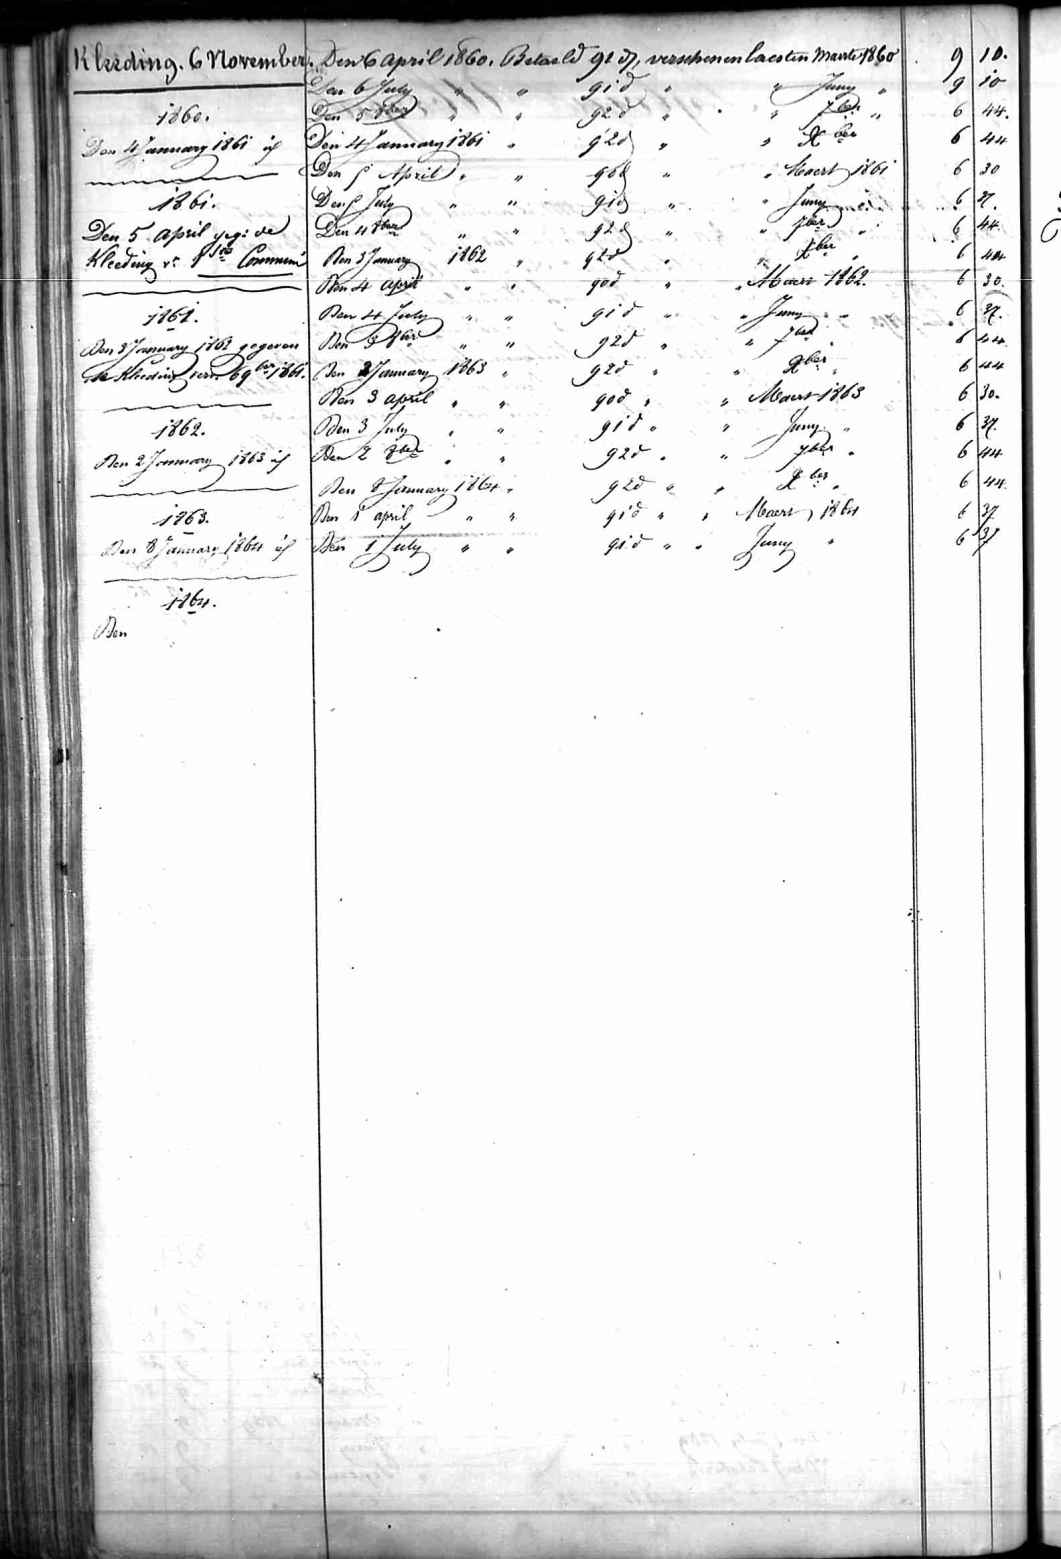 Kleeding. 6 November.
1860.
Den 4 January 1861 id
1861.
Den 5 April geg: de
Kleeding vr 1ste Communi
1861.
Den 3 January 1862 gegeven
de Kleeding vern 9ber 1861.
1862.
Den 2 January 1863 id
1863.
Den 8 January 1864 id
1864.
Den
Den 6 April 1860. Betaeld 91 d, verschenen laesten Maerte 1860 9 10.
Den 6 July " " 91 d " " Juny " 9 10
Den 5 8ber " " 92 d " " 7ber " 6 44.
Den 4 January 1861 " 92 d " " Xber 6 44
Den 5 April " " 90 d " " Maert 1861 6 30
Den 5 July " " 91 d " " Juny " 6 37.
Den 4 8ber " " 92 d " " 7ber " 6 44
Den 3 January 1862 " 92 d " " Xber " 6 44
Den 4 April " " 90 d " " Maert 1862. 6 30.
Den 4 July " " 91 d " " Juny " 6 37.
Den 3 8ber " " 92 d " " 7ber " 6 44
Den 2 January 1863 " 92 d " " Xber " 6 44
Den 3 april " " 90 d " " Maert 1863 6 30.
Den 3 July " " 91 d " " Juny " 6 37
Den 2 8ber " " 92 d " " 7ber " 6 44
Den 8 January 1864 " 92 d " " Xber " 6 44
Den 1 april " " 91 d " " Maert 1864 6 37
Den 1 July " " 91 d " " Juny " 6 37